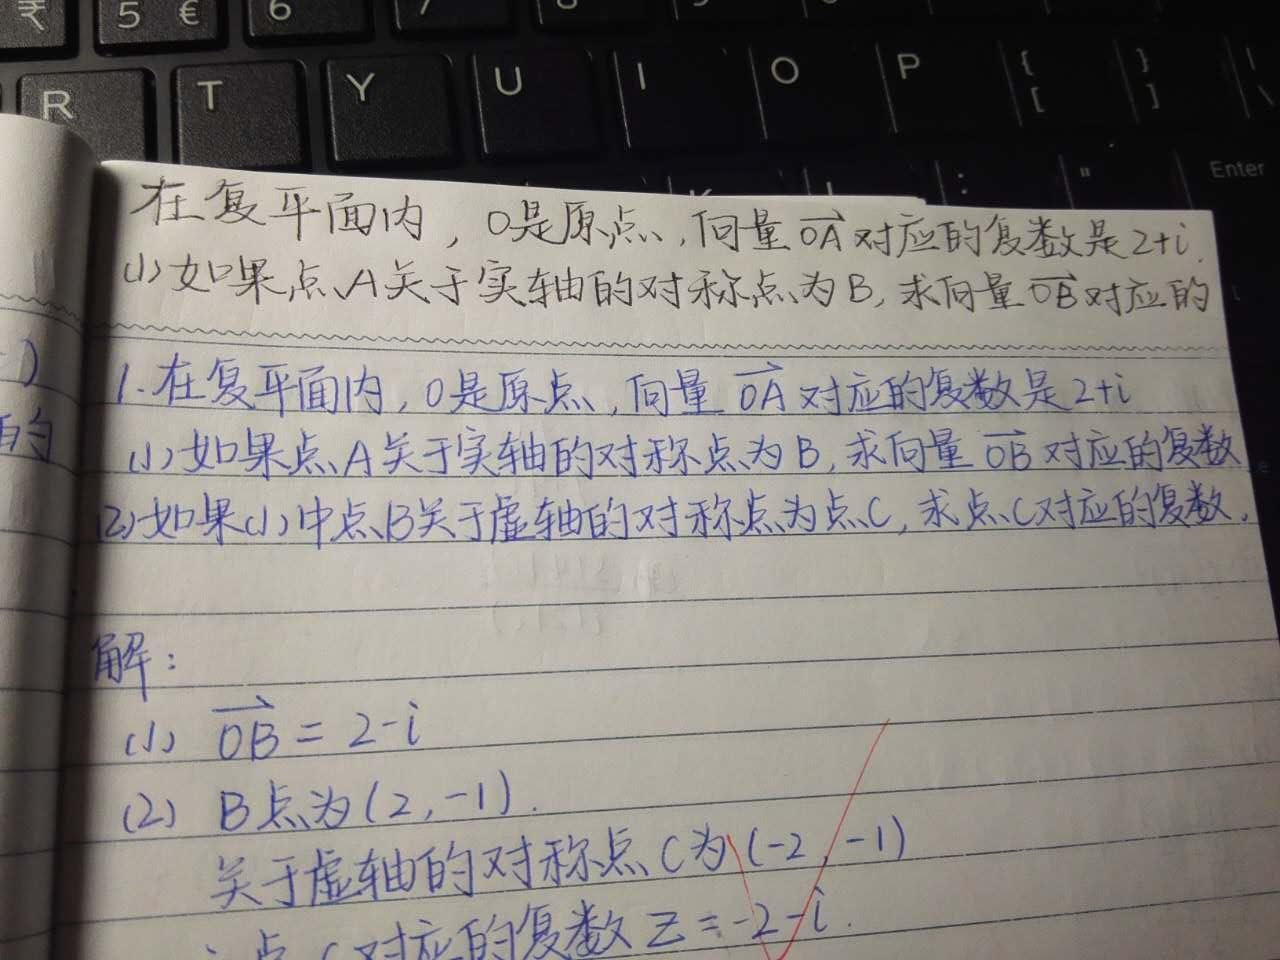 ₹ 5 € 6 7
R T Y U I O P { [ } ] | \
K L : " Enter
在复平面内，O是原点，向量OA对应的复数是2+i.
(1)如果点A关于实轴的对称点为B,求向量OB对应的
)
的
1.在复平面内,O是原点,向量 OA 对应的复数是2+i
(1)如果点A关于实轴的对称点为B,求向量 OB 对应的复数
(2)如果(1)中点B关于虚轴的对称点为点C,求点C对应的复数.
解:
(1) OB = 2-i
(2) B点为(2,-1).
关于虚轴的对称点C为(-2,-1)
∴点C对应的复数 Z=-2-i.